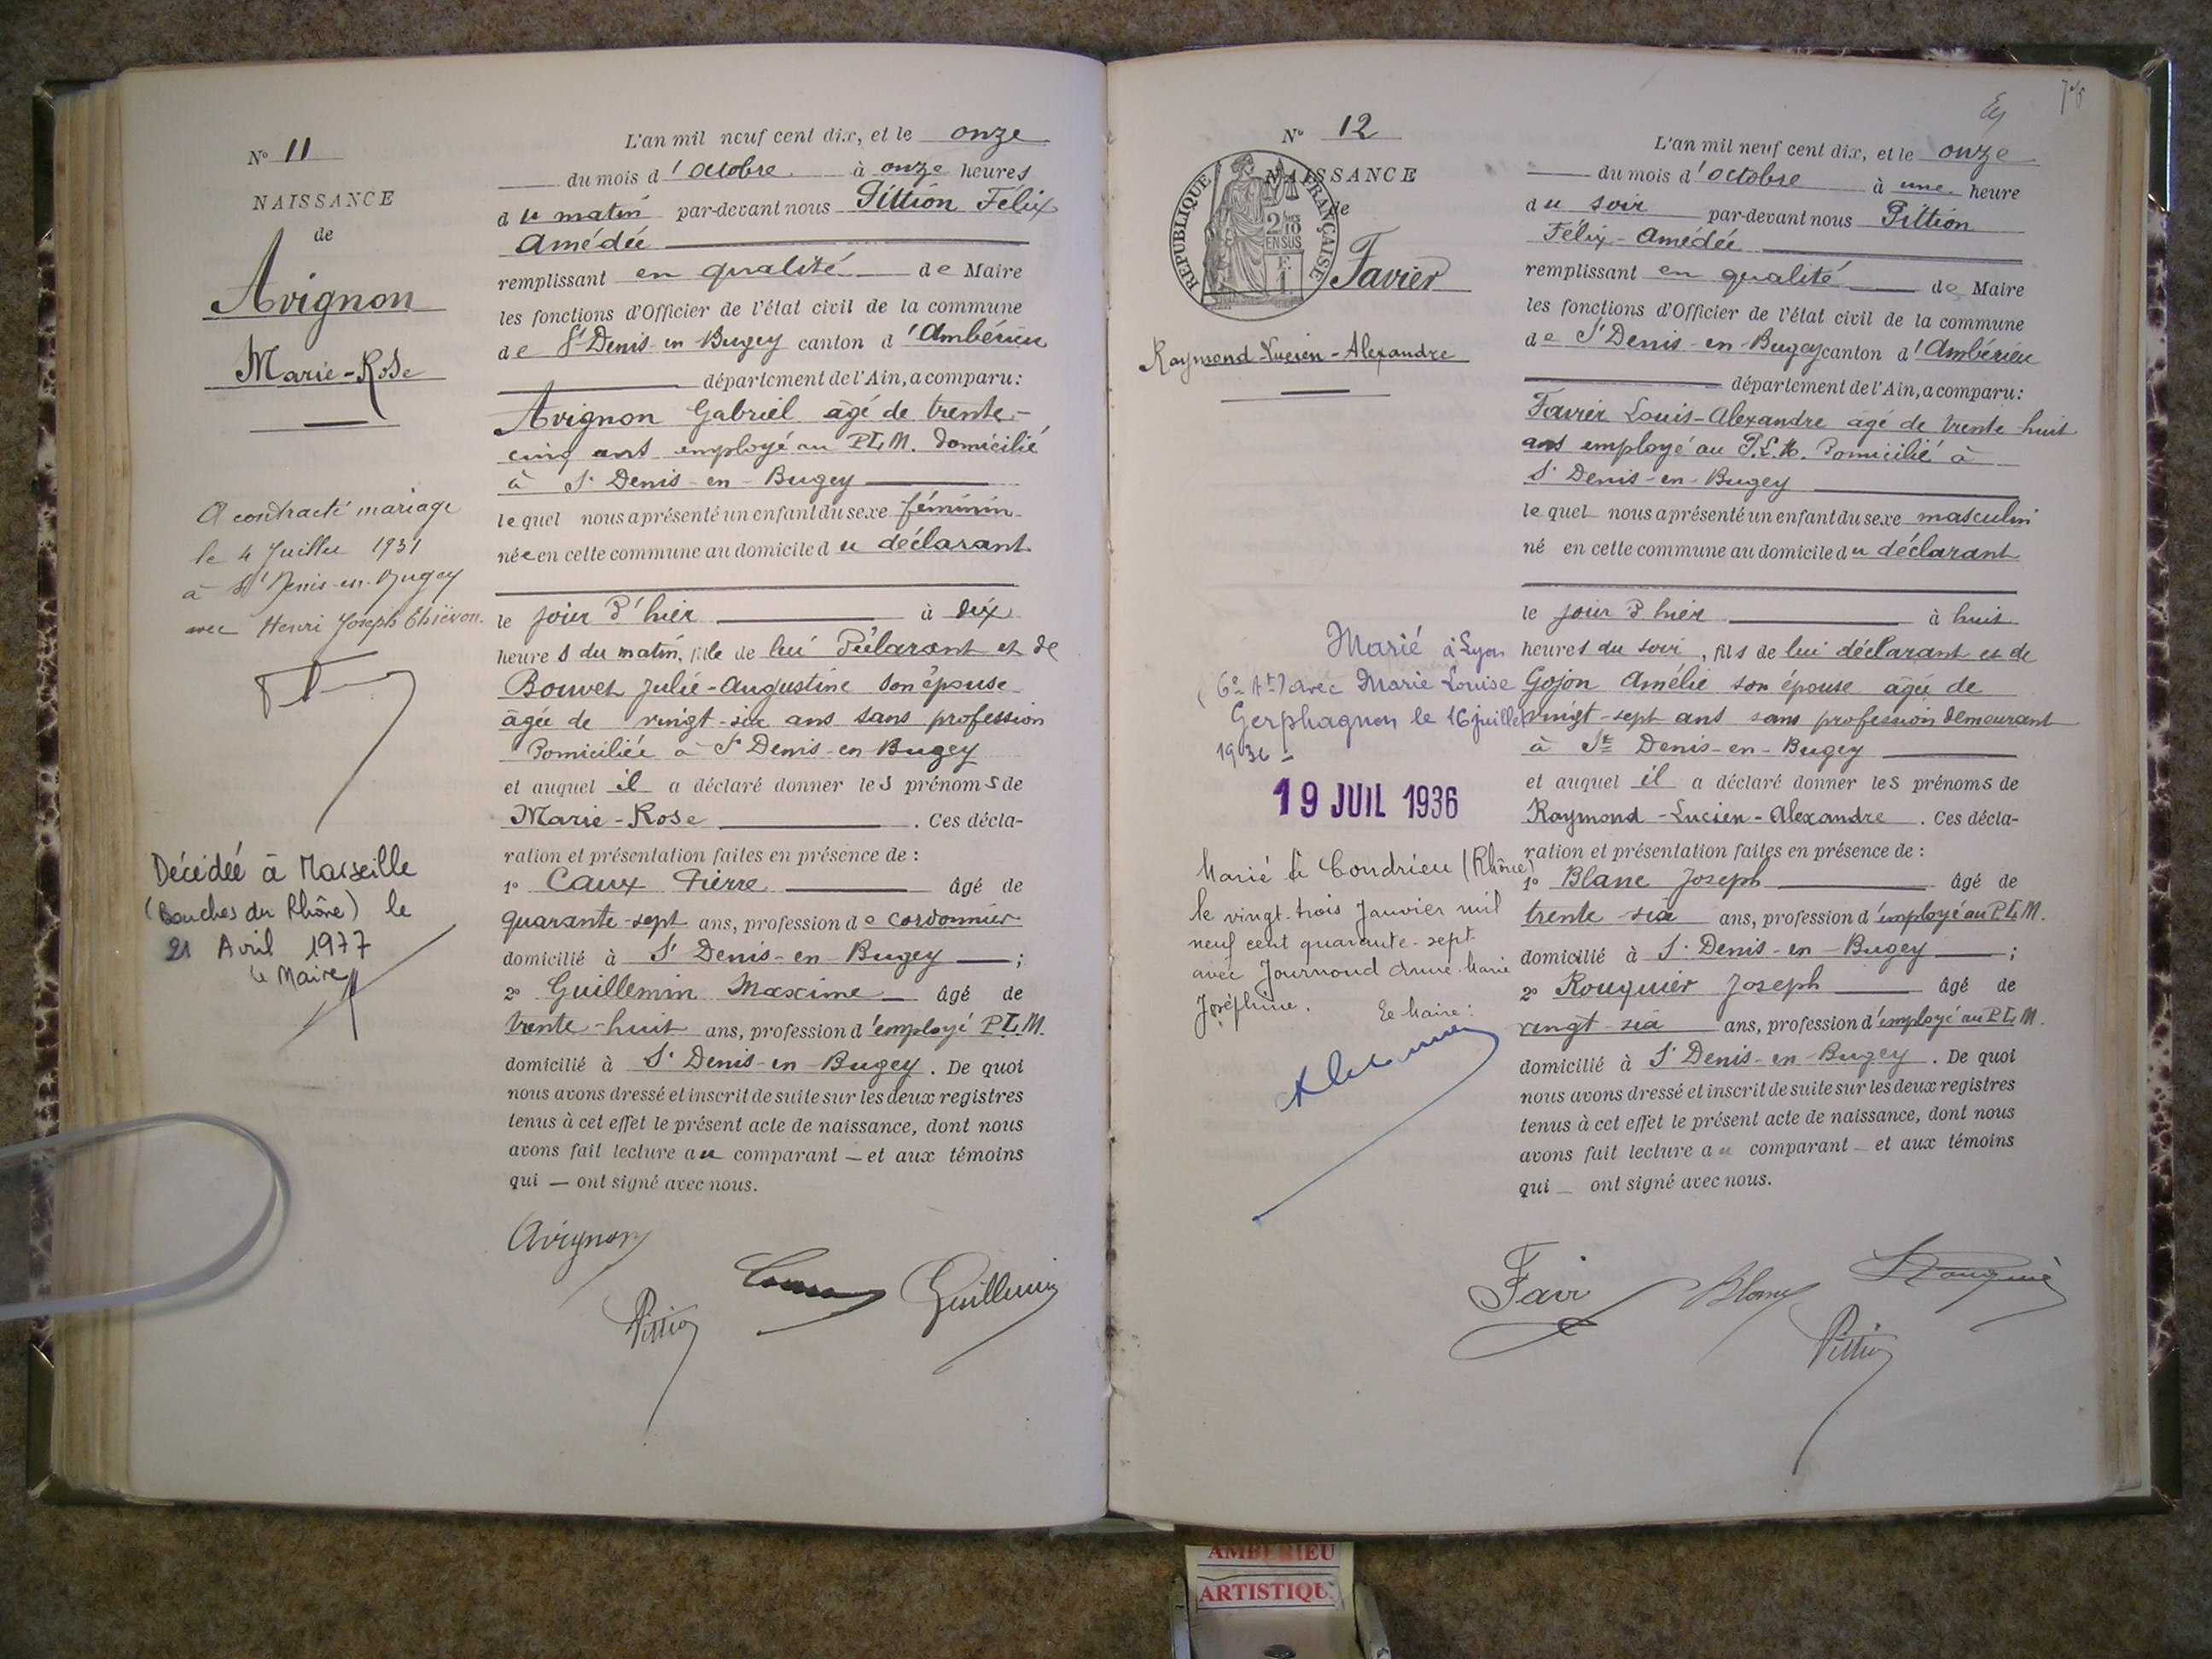 N° 11
NAISSANCE
de
Avignon
Marie-Rose
A contracté mariage
le 4 Juillet 1931
à St Denis-en-Bugey
avec Henri Joseph
Décédée à Marseille
(Bouches du Rhône) le
21 Avril 1977
le Maire
L'an mil neuf cent dix, et le onze
du mois d'octobre à onze heures
du matin par-devant nous Pittion Félix
Amédée
remplissant en qualité de Maire
les fonctions d'Officier de l'état civil de la commune
de St Denis-en-Bugey canton d'Ambérieu
département de l'Ain, a comparu:
Avignon Gabriel âgé de trente-
cinq ans employé au P.L.M. domicilié
à St Denis-en-Bugey
lequel nous a présenté un enfant du sexe féminin
née en cette commune au domicile du déclarant
le jour d'hier à dix
heures du matin, fille de lui déclarant et de
Bouvet Julie-Augustine son épouse
âgée de vingt-six ans sans profession
domiciliée à St Denis-en-Bugey
et auquel il a déclaré donner les prénoms de
Marie-Rose. Ces décla-
ration et présentation faites en présence de :
1° Caux Pierre âgé de
quarante-sept ans, profession de cordonnier
domicilié à St Denis-en-Bugey ;
2° Guillemin Maxime âgé de
trente-huit ans, profession d'employé P.L.M.
domicilié à St Denis-en-Bugey. De quoi
nous avons dressé et inscrit de suite sur les deux registres
tenus à cet effet le présent acte de naissance, dont nous
avons fait lecture au comparant — et aux témoins
qui — ont signé avec nous.
Avignon
Guillemin
Pittion
N° 12
NAISSANCE
de
RÉPUBLIQUE FRANÇAISE
2/10 EN SUS
Favier
Raymond Lucien-Alexandre
Marié à Lyon
(6e At) avec Marie Louise
Gerphagnon le 16 juillet
1936
19 JUIL 1936
Marié à Condrieu (Rhône)
le vingt-trois Janvier mil
neuf cent quarante-sept
avec Journoud Anne Marie
Joséphine.
Le Maire:
L'an mil neuf cent dix, et le onze
du mois d'octobre à une heure
du soir par-devant nous Pittion
Félix-Amédée
remplissant en qualité de Maire
les fonctions d'Officier de l'état civil de la commune
de St Denis-en-Bugey canton d'Ambérieu
département de l'Ain, a comparu:
Favier Louis-Alexandre âgé de trente-huit
ans employé au P.L.M. domicilié à
St Denis-en-Bugey
lequel nous a présenté un enfant du sexe masculin
né en cette commune au domicile du déclarant
le jour d'hier à huit
heures du soir, fils de lui déclarant et de
Gojon Amélie son épouse âgée de
vingt-sept ans sans profession demeurant
à St Denis-en-Bugey
et auquel il a déclaré donner les prénoms de
Raymond-Lucien-Alexandre. Ces décla-
ration et présentation faites en présence de :
1° Blanc Joseph âgé de
trente-six ans, profession d'employé au P.L.M.
domicilié à St Denis-en-Bugey ;
2° Rouquier Joseph âgé de
vingt-six ans, profession d'employé au P.L.M.
domicilié à St Denis-en-Bugey. De quoi
nous avons dressé et inscrit de suite sur les deux registres
tenus à cet effet le présent acte de naissance, dont nous
avons fait lecture au comparant — et aux témoins
qui — ont signé avec nous.
Favier Blanc Rouquier
Pittion
AMBERIEU
ARTISTIQU